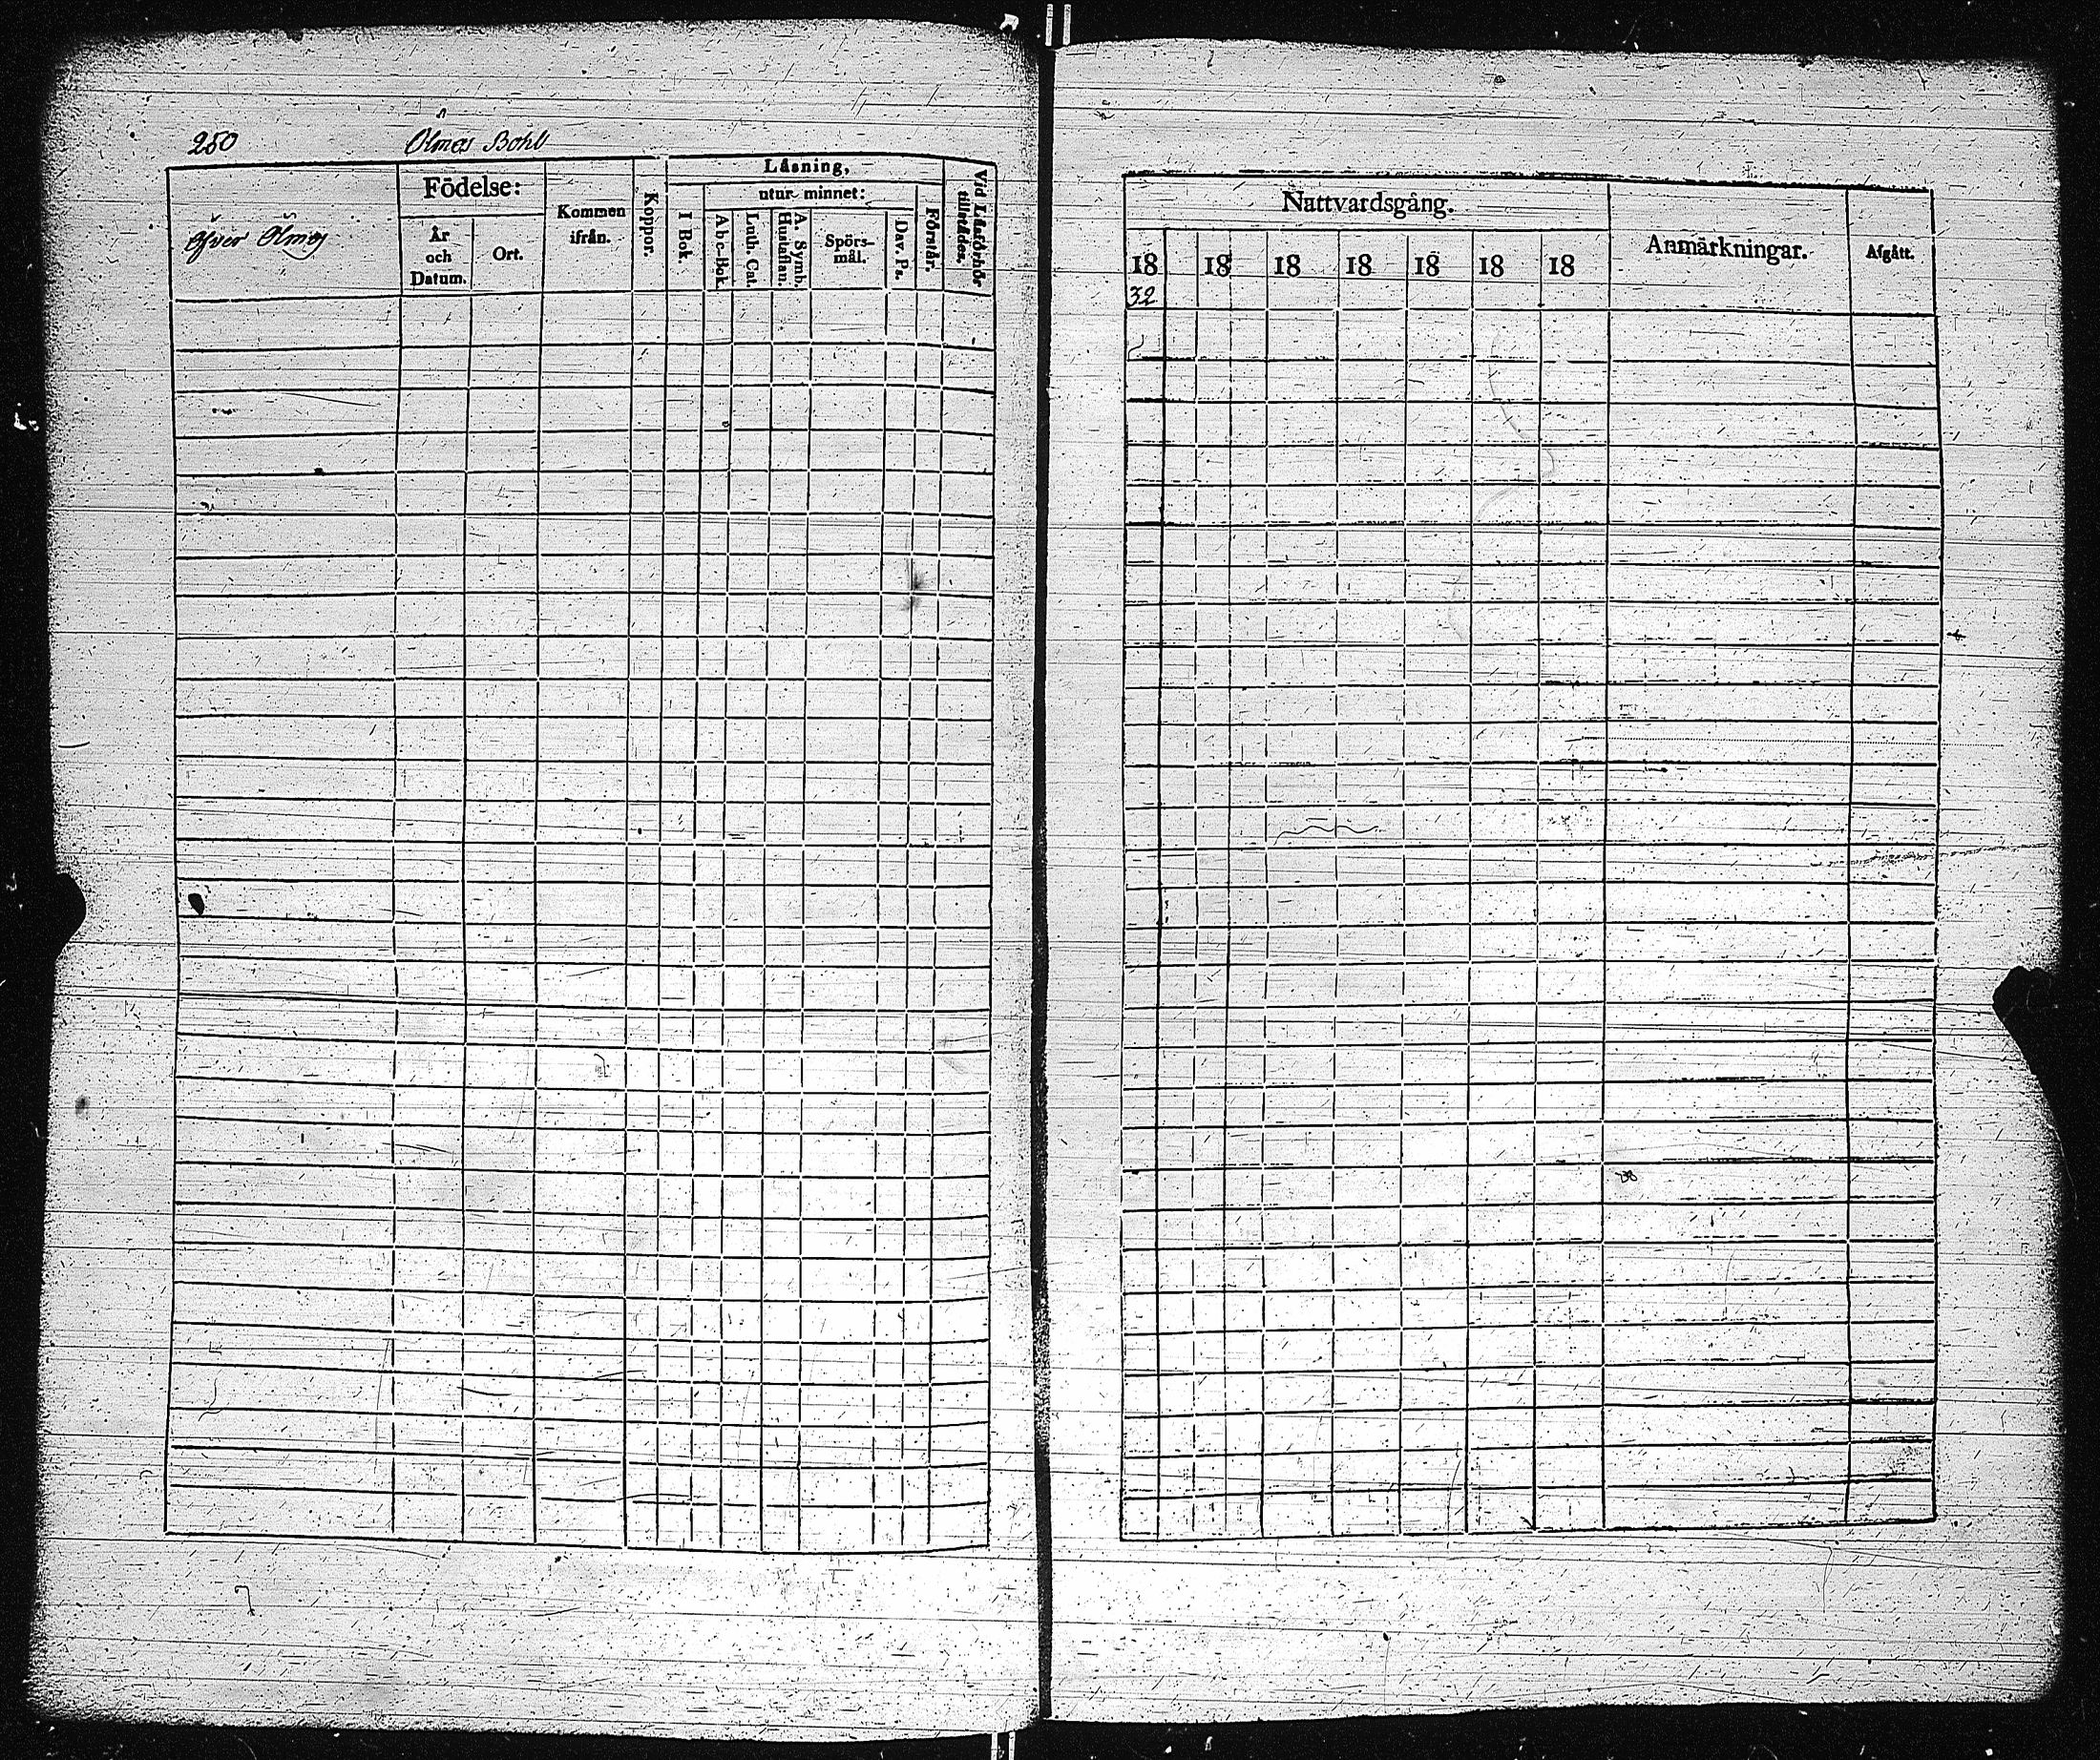 250 Olmos Bohl
Öfver Olmos
Födelse:
År och Datum.
Ort.
Kommen ifrån.
Koppor.
Läsning,
I Bok
utur minnet:
Abc-Bok.
Luth. Cat.
A. Symb. Hustaflan.
Spörs-
mål.
Dav. Ps.
Förstår.
Vid Läsförhör tillstådes.
Nattvardsgång.
18 18 18 18 18 18 18
32
Anmärkningar.
Afgått.